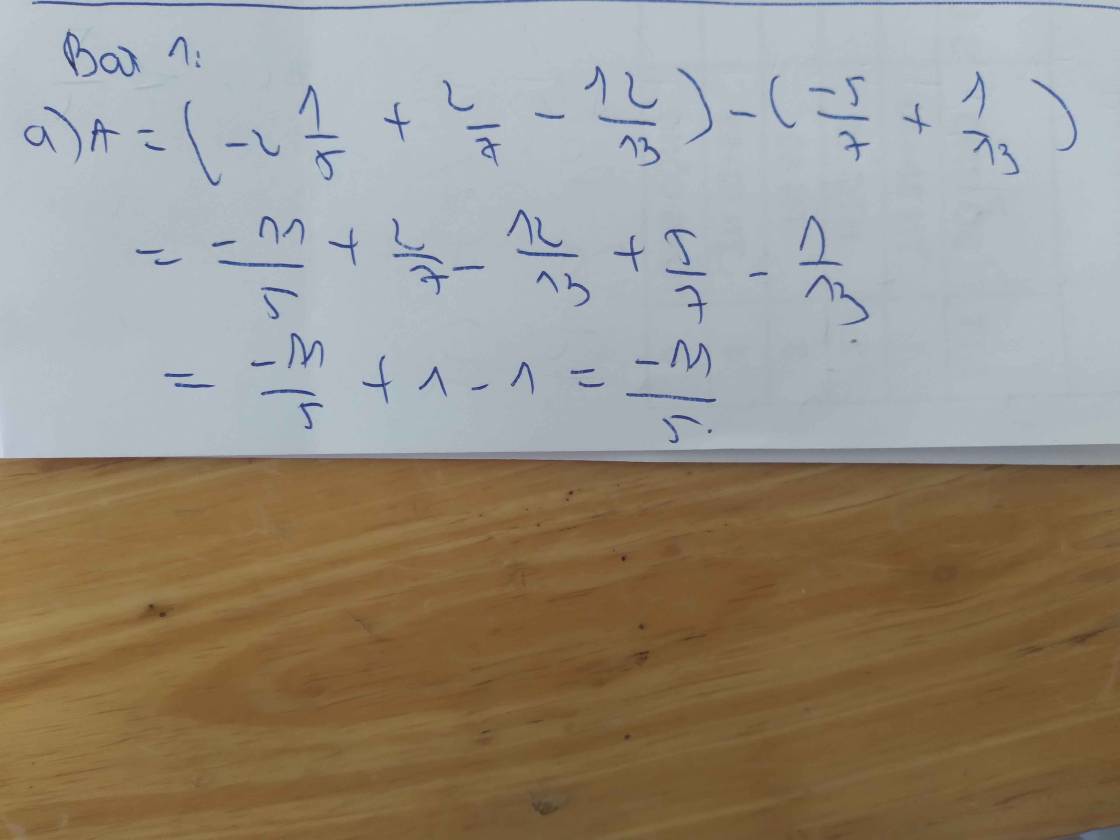 Bài 1:
a) A = (-2 1/5 + 2/7 - 12/13) - (-5/7 + 1/13)
= -11/5 + 2/7 - 12/13 + 5/7 - 1/13
= -11/5 + 1 - 1 = -11/5.